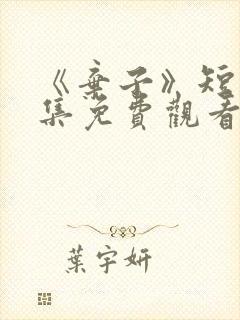 《棄子》短
集免費觀看
葉宇妍